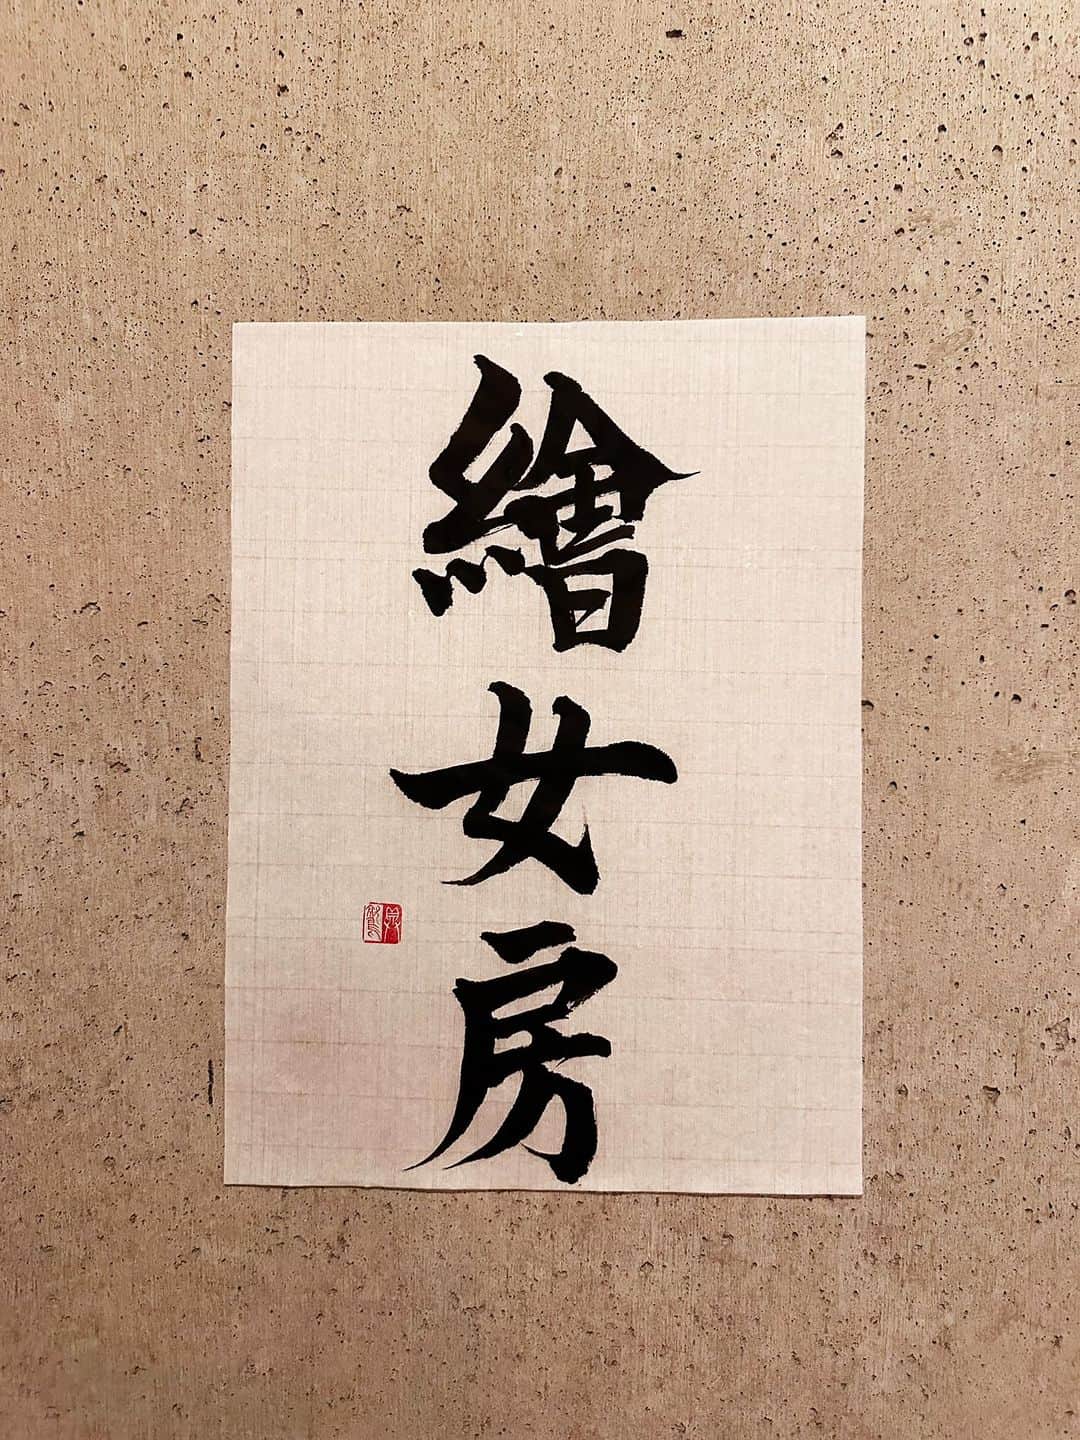 繪女房